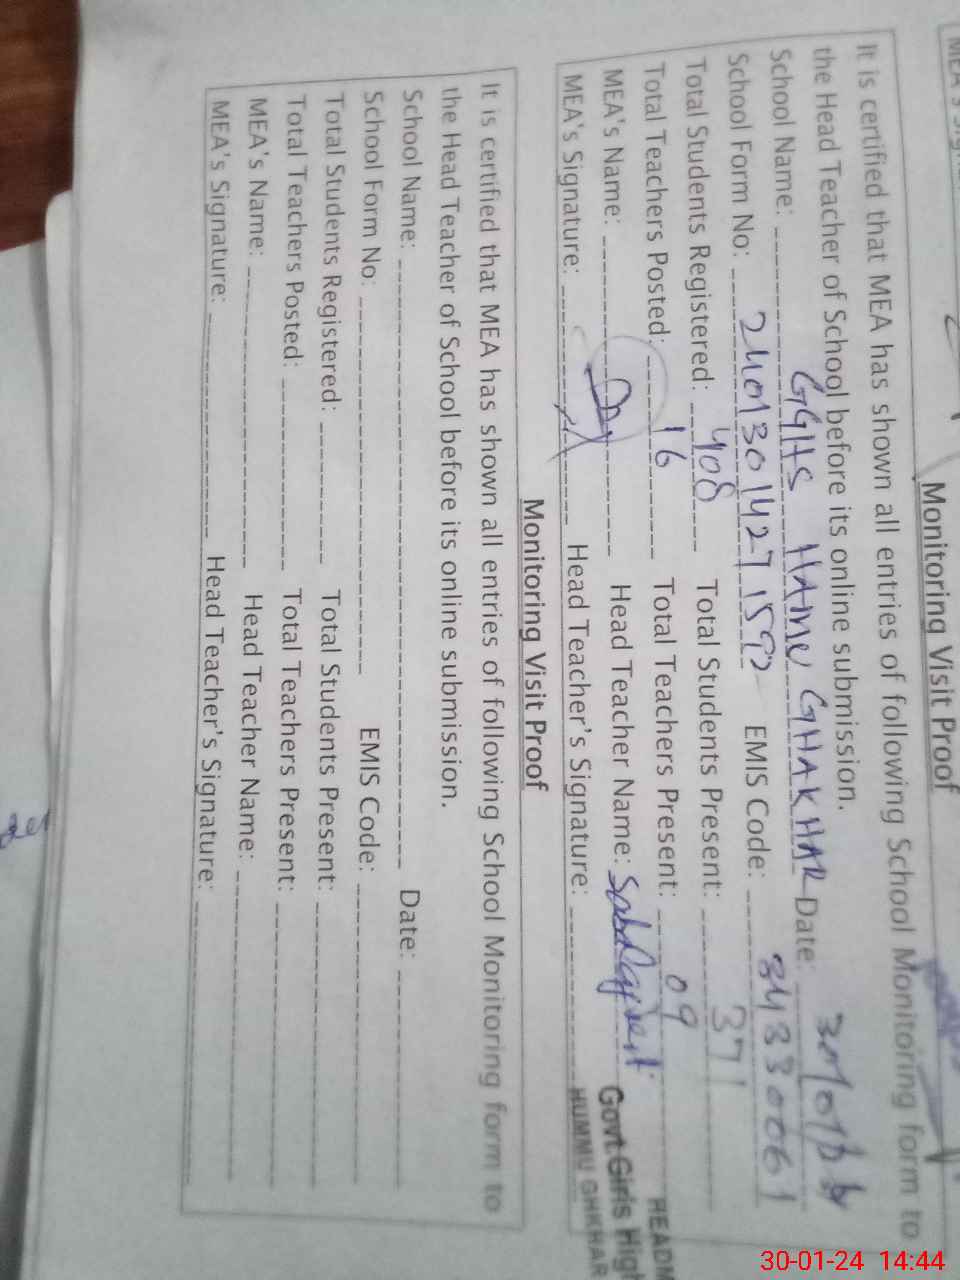 Monitoring Visit Proof
It is certified that MEA has shown all entries of following School Monitoring form to
the Head Teacher of School before its online submission.
School Name: GGHS GHAKHAR Date:
School Form No: 2401301427 1592 EMIS Code: 34330061
Total Students Registered: 408 Total Students Present: 371
Total Teachers Posted: 16 Total Teachers Present: 09
MEA's Name: Head Teacher Name:
MEA's Signature: Head Teacher's Signature:
HEADM
Govt. Girls High
HUMMU GHKHAR
Monitoring Visit Proof
It is certified that MEA has shown all entries of following School Monitoring form to
the Head Teacher of School before its online submission.
School Name: Date:
School Form No: EMIS Code:
Total Students Registered: Total Students Present:
Total Teachers Posted: Total Teachers Present:
MEA's Name: Head Teacher Name:
MEA's Signature: Head Teacher's Signature:
30-01-24 14:44